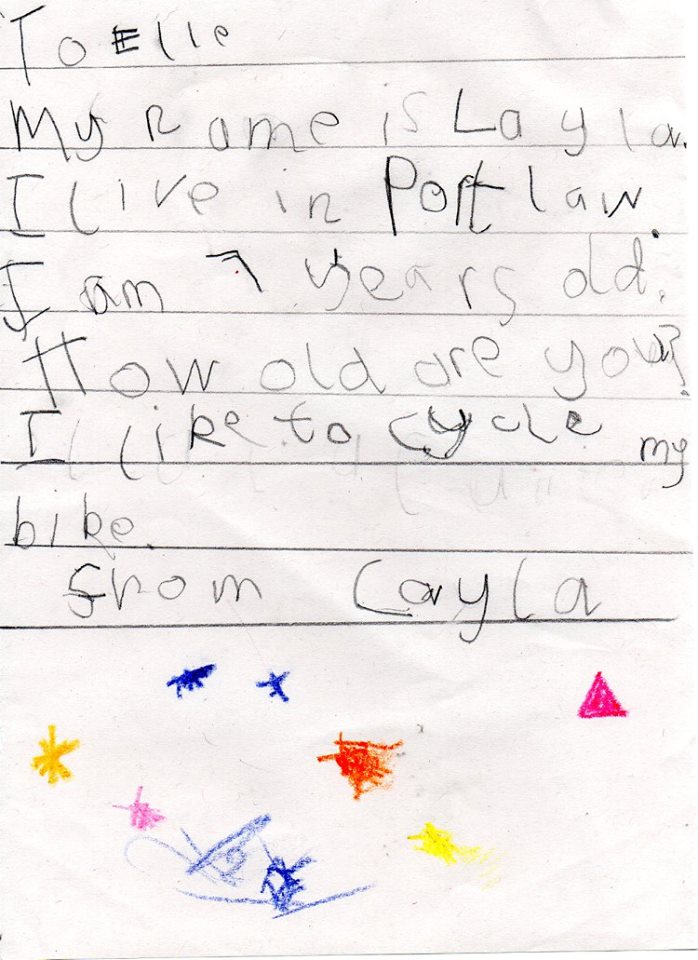 To Elle
My name is Layla.
I live in Portlaw.
I am 7 years old.
How old are you?
I like to cycle my
bike.
from Layla